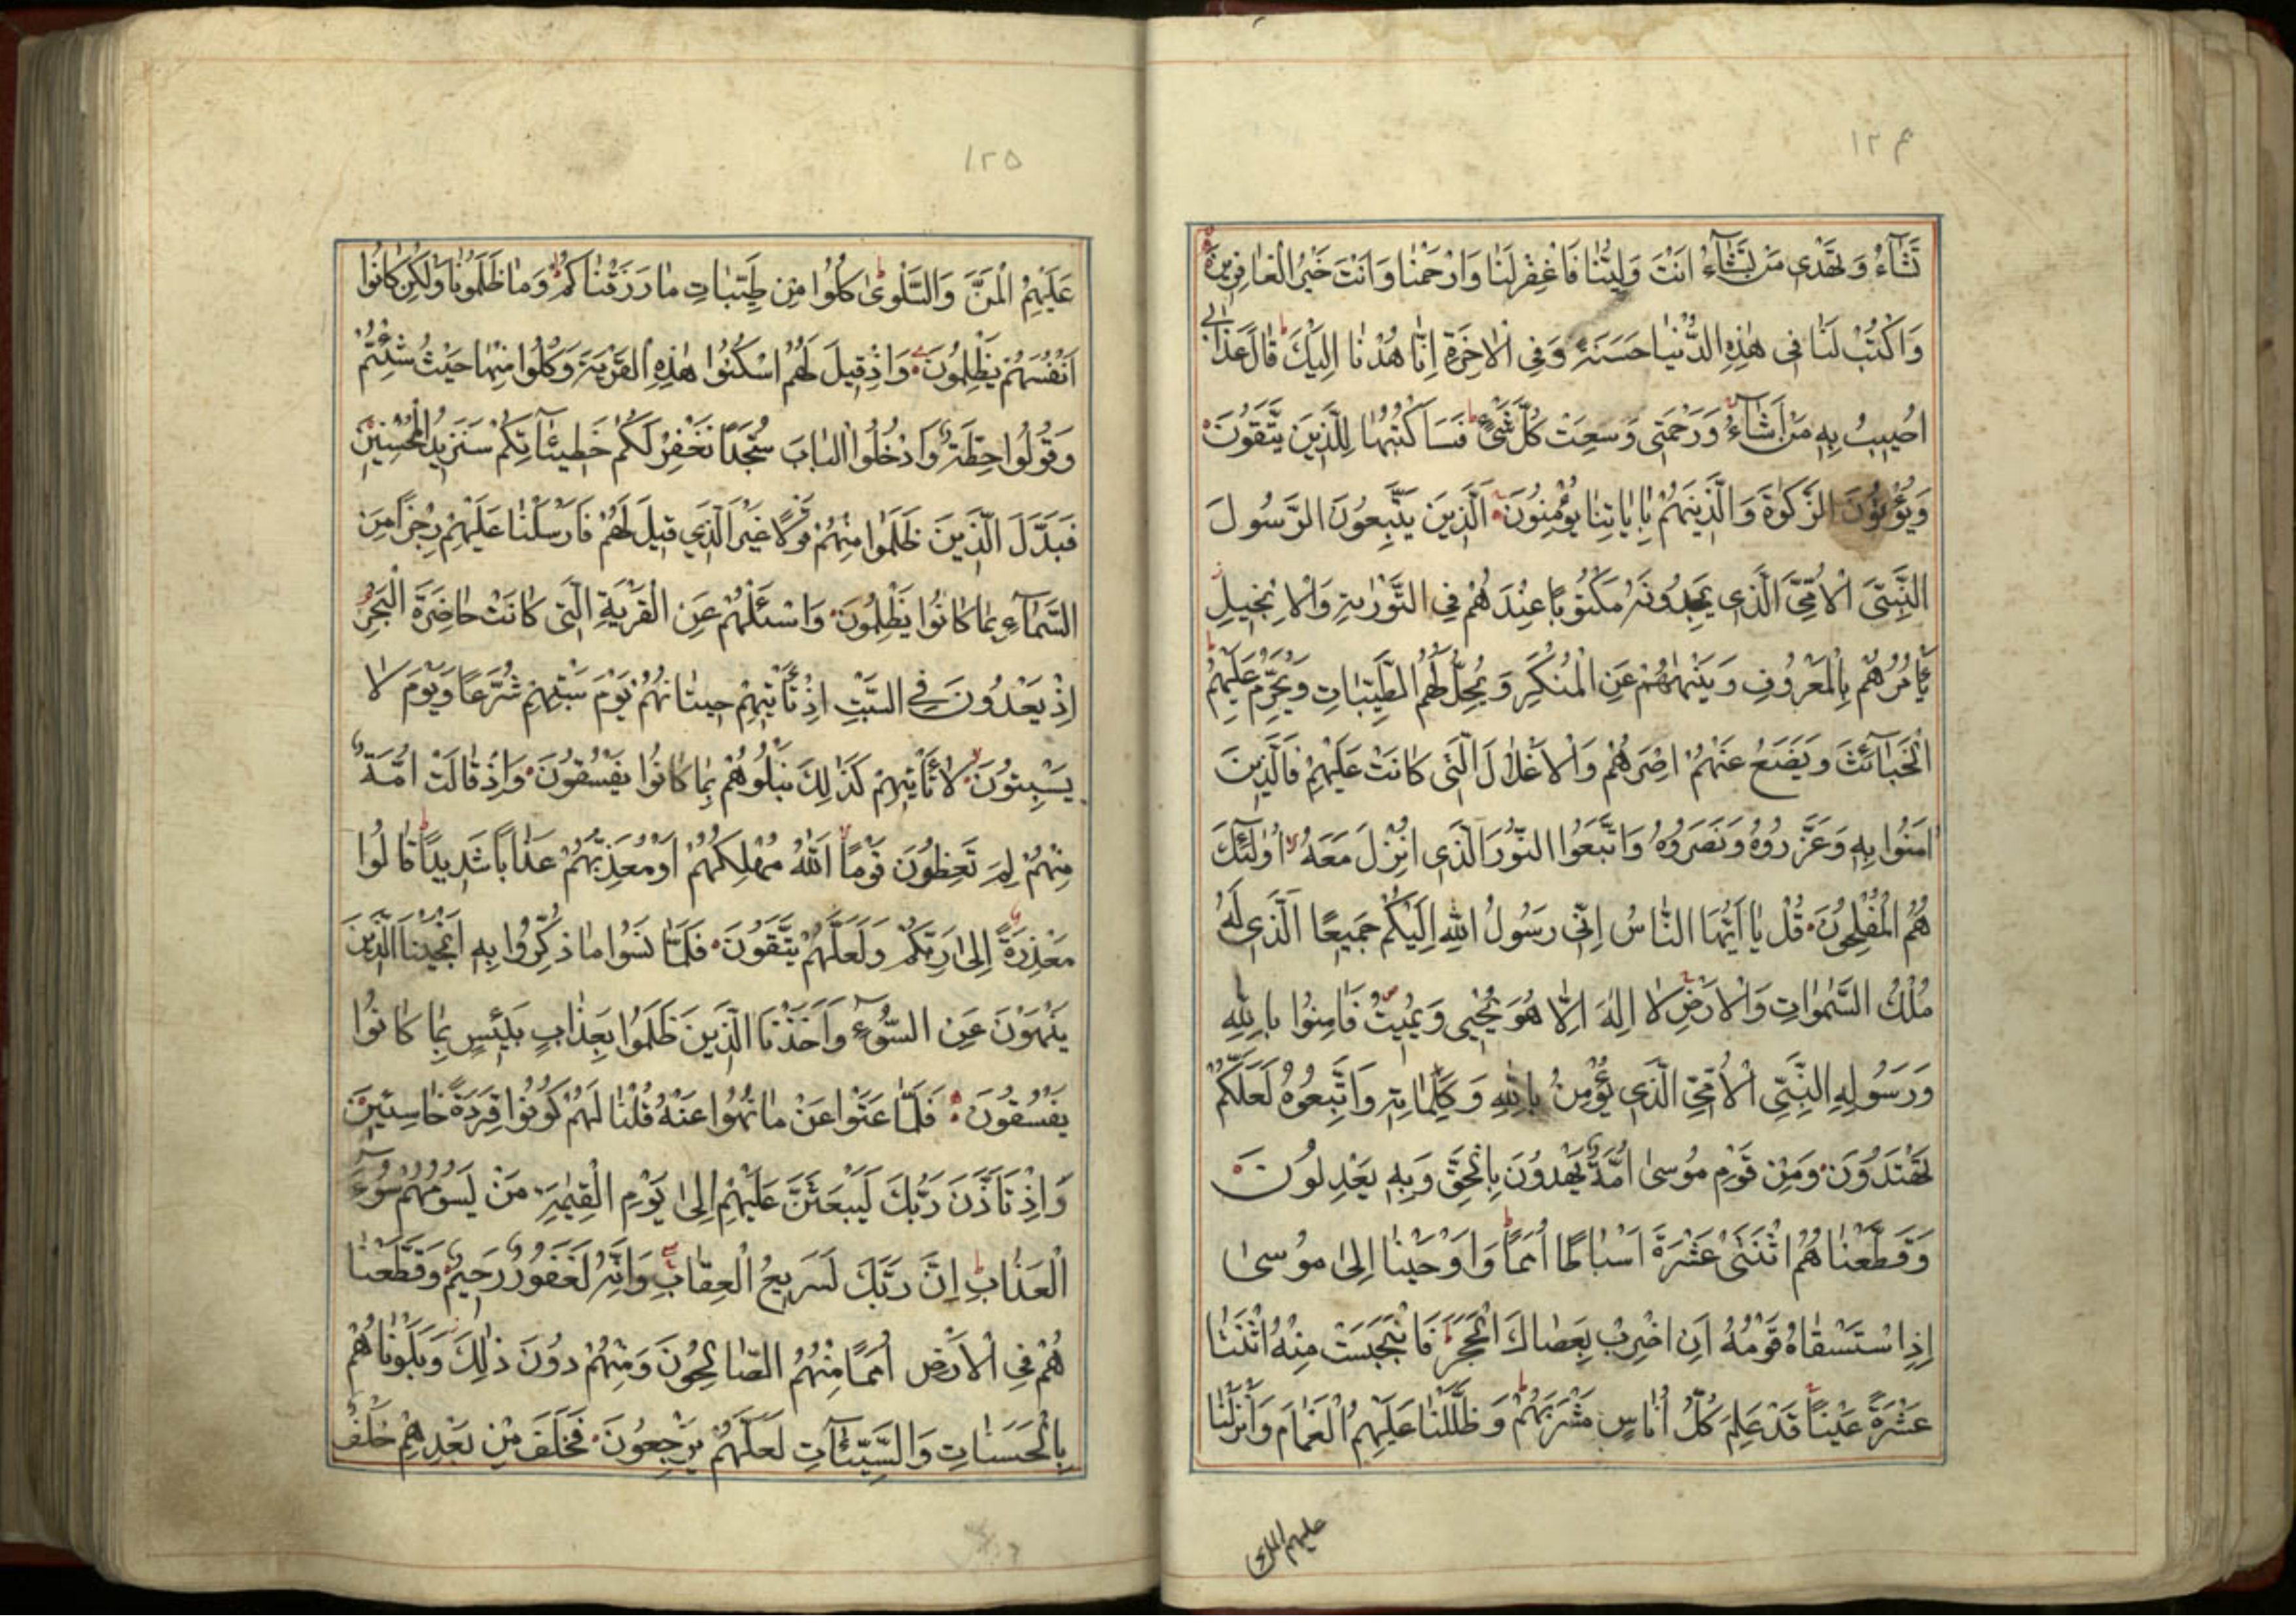 ١٢۴
تَشَآءُ وَتَهْدِی مَنْ تَشَآءُ اَنْتَ وَلِیُّنَا فَاغْفِرْ لَنَا وَارْحَمْنَا وَاَنْتَ خَیْرُ الْغَافِرِینَ
وَاکْتُبْ لَنَا فِی هٰذِهِ الدُّنْیَا حَسَنَةً وَفِی الْاٰخِرَةِ اِنَّا هُدْنَا اِلَیْكَ قَالَ عَذَابِی
اُصِیبُ بِهِ مَنْ اَشَآءُ وَرَحْمَتِی وَسِعَتْ کُلَّ شَیْءٍ فَسَاَکْتُبُهَا لِلَّذِینَ یَتَّقُونَ
وَیُؤْتُونَ الزَّکٰوةَ وَالَّذِینَهُمْ بِاٰیَاتِنَا یُؤْمِنُونَ اَلَّذِینَ یَتَّبِعُونَ الرَّسُولَ
النَّبِیَّ الْاُمِّیَّ الَّذِی یَجِدُونَهُ مَکْتُوبًا عِنْدَهُمْ فِی التَّوْرٰیةِ وَالْاِنْجِیلِ
یَأْمُرُهُمْ بِالْمَعْرُوفِ وَیَنْهٰهُمْ عَنِ الْمُنْکَرِ وَیُحِلُّ لَهُمُ الطَّیِّبَاتِ وَیُحَرِّمُ عَلَیْهِمُ
الْخَبَآئِثَ وَیَضَعُ عَنْهُمْ اِصْرَهُمْ وَالْاَغْلَالَ الَّتِی کَانَتْ عَلَیْهِمْ فَالَّذِینَ
اٰمَنُوا بِهِ وَعَزَّرُوهُ وَنَصَرُوهُ وَاتَّبَعُوا النُّورَ الَّذِی اُنْزِلَ مَعَهُ اُولٰئِكَ
هُمُ الْمُفْلِحُونَ قُلْ یَا اَیُّهَا النَّاسُ اِنِّی رَسُولُ اللهِ اِلَیْکُمْ جَمِیعًا الَّذِی لَهُ
مُلْكُ السَّمٰوَاتِ وَالْاَرْضِ لَا اِلٰهَ اِلَّا هُوَ یُحْیِی وَیُمِیتُ فَاٰمِنُوا بِاللهِ
وَرَسُولِهِ النَّبِیِّ الْاُمِّیِّ الَّذِی یُؤْمِنُ بِاللهِ وَکَلِمَاتِهِ وَاتَّبِعُوهُ لَعَلَّکُمْ
تَهْتَدُونَ وَمِنْ قَوْمِ مُوسیٰ اُمَّةٌ یَهْدُونَ بِالْحَقِّ وَبِهِ یَعْدِلُونَ
وَقَطَّعْنَاهُمُ اثْنَتَیْ عَشْرَةَ اَسْبَاطًا اُمَمًا وَاَوْحَیْنَا اِلیٰ مُوسیٰ
اِذِ اسْتَسْقَاهُ قَوْمُهُ اَنِ اضْرِبْ بِعَصَاكَ الْحَجَرَ فَانْبَجَسَتْ مِنْهُ اثْنَتَا
عَشْرَةَ عَیْنًا قَدْ عَلِمَ کُلُّ اُنَاسٍ مَشْرَبَهُمْ وَظَلَّلْنَا عَلَیْهِمُ الْغَمَامَ وَاَنْزَلْنَا
علیهم المن
١٢٥
عَلَیْهِمُ الْمَنَّ وَالسَّلْویٰ کُلُوا مِنْ طَیِّبَاتِ مَا رَزَقْنَاکُمْ وَمَا ظَلَمُونَا وَلٰکِنْ کَانُوا
اَنْفُسَهُمْ یَظْلِمُونَ وَاِذْ قِیلَ لَهُمُ اسْکُنُوا هٰذِهِ الْقَرْیَةَ وَکُلُوا مِنْهَا حَیْثُ شِئْتُمْ
وَقُولُوا حِطَّةٌ وَادْخُلُوا الْبَابَ سُجَّدًا نَغْفِرْ لَکُمْ خَطِیئَاتِکُمْ سَنَزِیدُ الْمُحْسِنِینَ
فَبَدَّلَ الَّذِینَ ظَلَمُوا مِنْهُمْ قَوْلًا غَیْرَ الَّذِی قِیلَ لَهُمْ فَاَرْسَلْنَا عَلَیْهِمْ رِجْزًا مِنَ
السَّمَآءِ بِمَا کَانُوا یَظْلِمُونَ وَاسْئَلْهُمْ عَنِ الْقَرْیَةِ الَّتِی کَانَتْ حَاضِرَةَ الْبَحْرِ
اِذْ یَعْدُونَ فِی السَّبْتِ اِذْ تَأْتِیهِمْ حِیتَانُهُمْ یَوْمَ سَبْتِهِمْ شُرَّعًا وَیَوْمَ لَا
یَسْبِتُونَ لَا تَأْتِیهِمْ کَذٰلِكَ نَبْلُوهُمْ بِمَا کَانُوا یَفْسُقُونَ وَاِذْ قَالَتْ اُمَّةٌ
مِنْهُمْ لِمَ تَعِظُونَ قَوْمًا اللهُ مُهْلِکُهُمْ اَوْ مُعَذِّبُهُمْ عَذَابًا شَدِیدًا قَالُوا
مَعْذِرَةً اِلیٰ رَبِّکُمْ وَلَعَلَّهُمْ یَتَّقُونَ فَلَمَّا نَسُوا مَا ذُکِّرُوا بِهِ اَنْجَیْنَا الَّذِینَ
یَنْهَوْنَ عَنِ السُّوءِ وَاَخَذْنَا الَّذِینَ ظَلَمُوا بِعَذَابٍ بَئِیسٍ بِمَا کَانُوا
یَفْسُقُونَ فَلَمَّا عَتَوْا عَنْ مَا نُهُوا عَنْهُ قُلْنَا لَهُمْ کُونُوا قِرَدَةً خَاسِئِینَ
وَاِذْ تَاَذَّنَ رَبُّكَ لَیَبْعَثَنَّ عَلَیْهِمْ اِلیٰ یَوْمِ الْقِیٰمَةِ مَنْ یَسُومُهُمْ سُوٓءَ
الْعَذَابِ اِنَّ رَبَّكَ لَسَرِیعُ الْعِقَابِ وَاِنَّهُ لَغَفُورٌ رَحِیمٌ وَقَطَّعْنَا
هُمْ فِی الْاَرْضِ اُمَمًا مِنْهُمُ الصَّالِحُونَ وَمِنْهُمْ دُونَ ذٰلِكَ وَبَلَوْنَاهُمْ
بِالْحَسَنَاتِ وَالسَّیِّئَاتِ لَعَلَّهُمْ یَرْجِعُونَ فَخَلَفَ مِنْ بَعْدِهِمْ خَلْفٌ